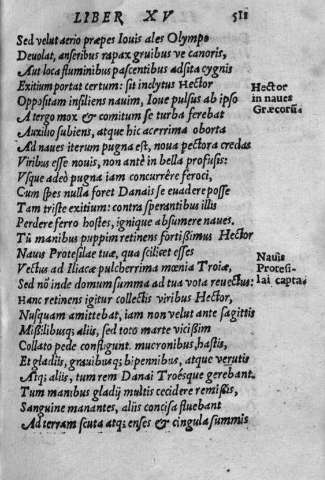 LIBER XV 511
Sed velut aerio præpes Iouis ales Olympo
Deuolat, anseribus rapax gruibus ve canoris,
Aut loca fluminibus pascentibus adsita cygnis
Exitium portat certum: sit inclytus Hector
Oppositam insiliens nauim, Ioue pulsus ab ipso
A tergo mox & comitum se turba ferebat
Auxilio subiens, atque hic acerrima oborta
Ad naues iterum pugna est, noua pectora credas
Viribus esse nouis, non antè in bella profusis:
Vsque adeò pugna iam concurrêre feroci,
Cum spes nulla foret Danais se euadere posse
Tam triste exitium: contra sperantibus illis
Perdere ferro hostes, ignique absumere naues.
Tū manibus puppim retinens fortißimus Hector
Nauis Protesilae tuæ, qua scilicet esses
Vectus ad Iliacæ pulcherrima mœnia Troiæ,
Sed nō inde domum summa ad tua vota reuectus:
Hanc retinens igitur collectis viribus Hector,
Nusquam amittebat, iam non velut ante sagittis
Mißilibusq; aliis, sed toto marte vicißim
Collato pede confligunt. mucronibus, hastis,
Et gladiis, grauibusq; bipennibus, atque verutis
Atq; aliis, tum rem Danai Troésque gerebant.
Tum manibus gladij multis cecidere remißis,
Sanguine manantes, aliis concisa fluebant
Ad terram scuta atq; enses & cingula summis
Hector
in naues
Græcorū.
Nauis
Protesi-
lai capta.